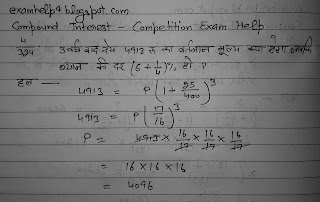 examhelp9.blogspot.com
Compound Interest - Competition Exam Help
3 वर्ष बाद देय 4913 रू का वर्तमान मूल्य क्या होगा
ब्याज की दर (6 + 1/4)%, हो ?
हल: —
4913 = P(1 + 25/400)^3
4913 = P(17/16)^3
P = 4913 × 16/17 × 16/17 × 16/17
= 16 × 16 × 16
= 4096